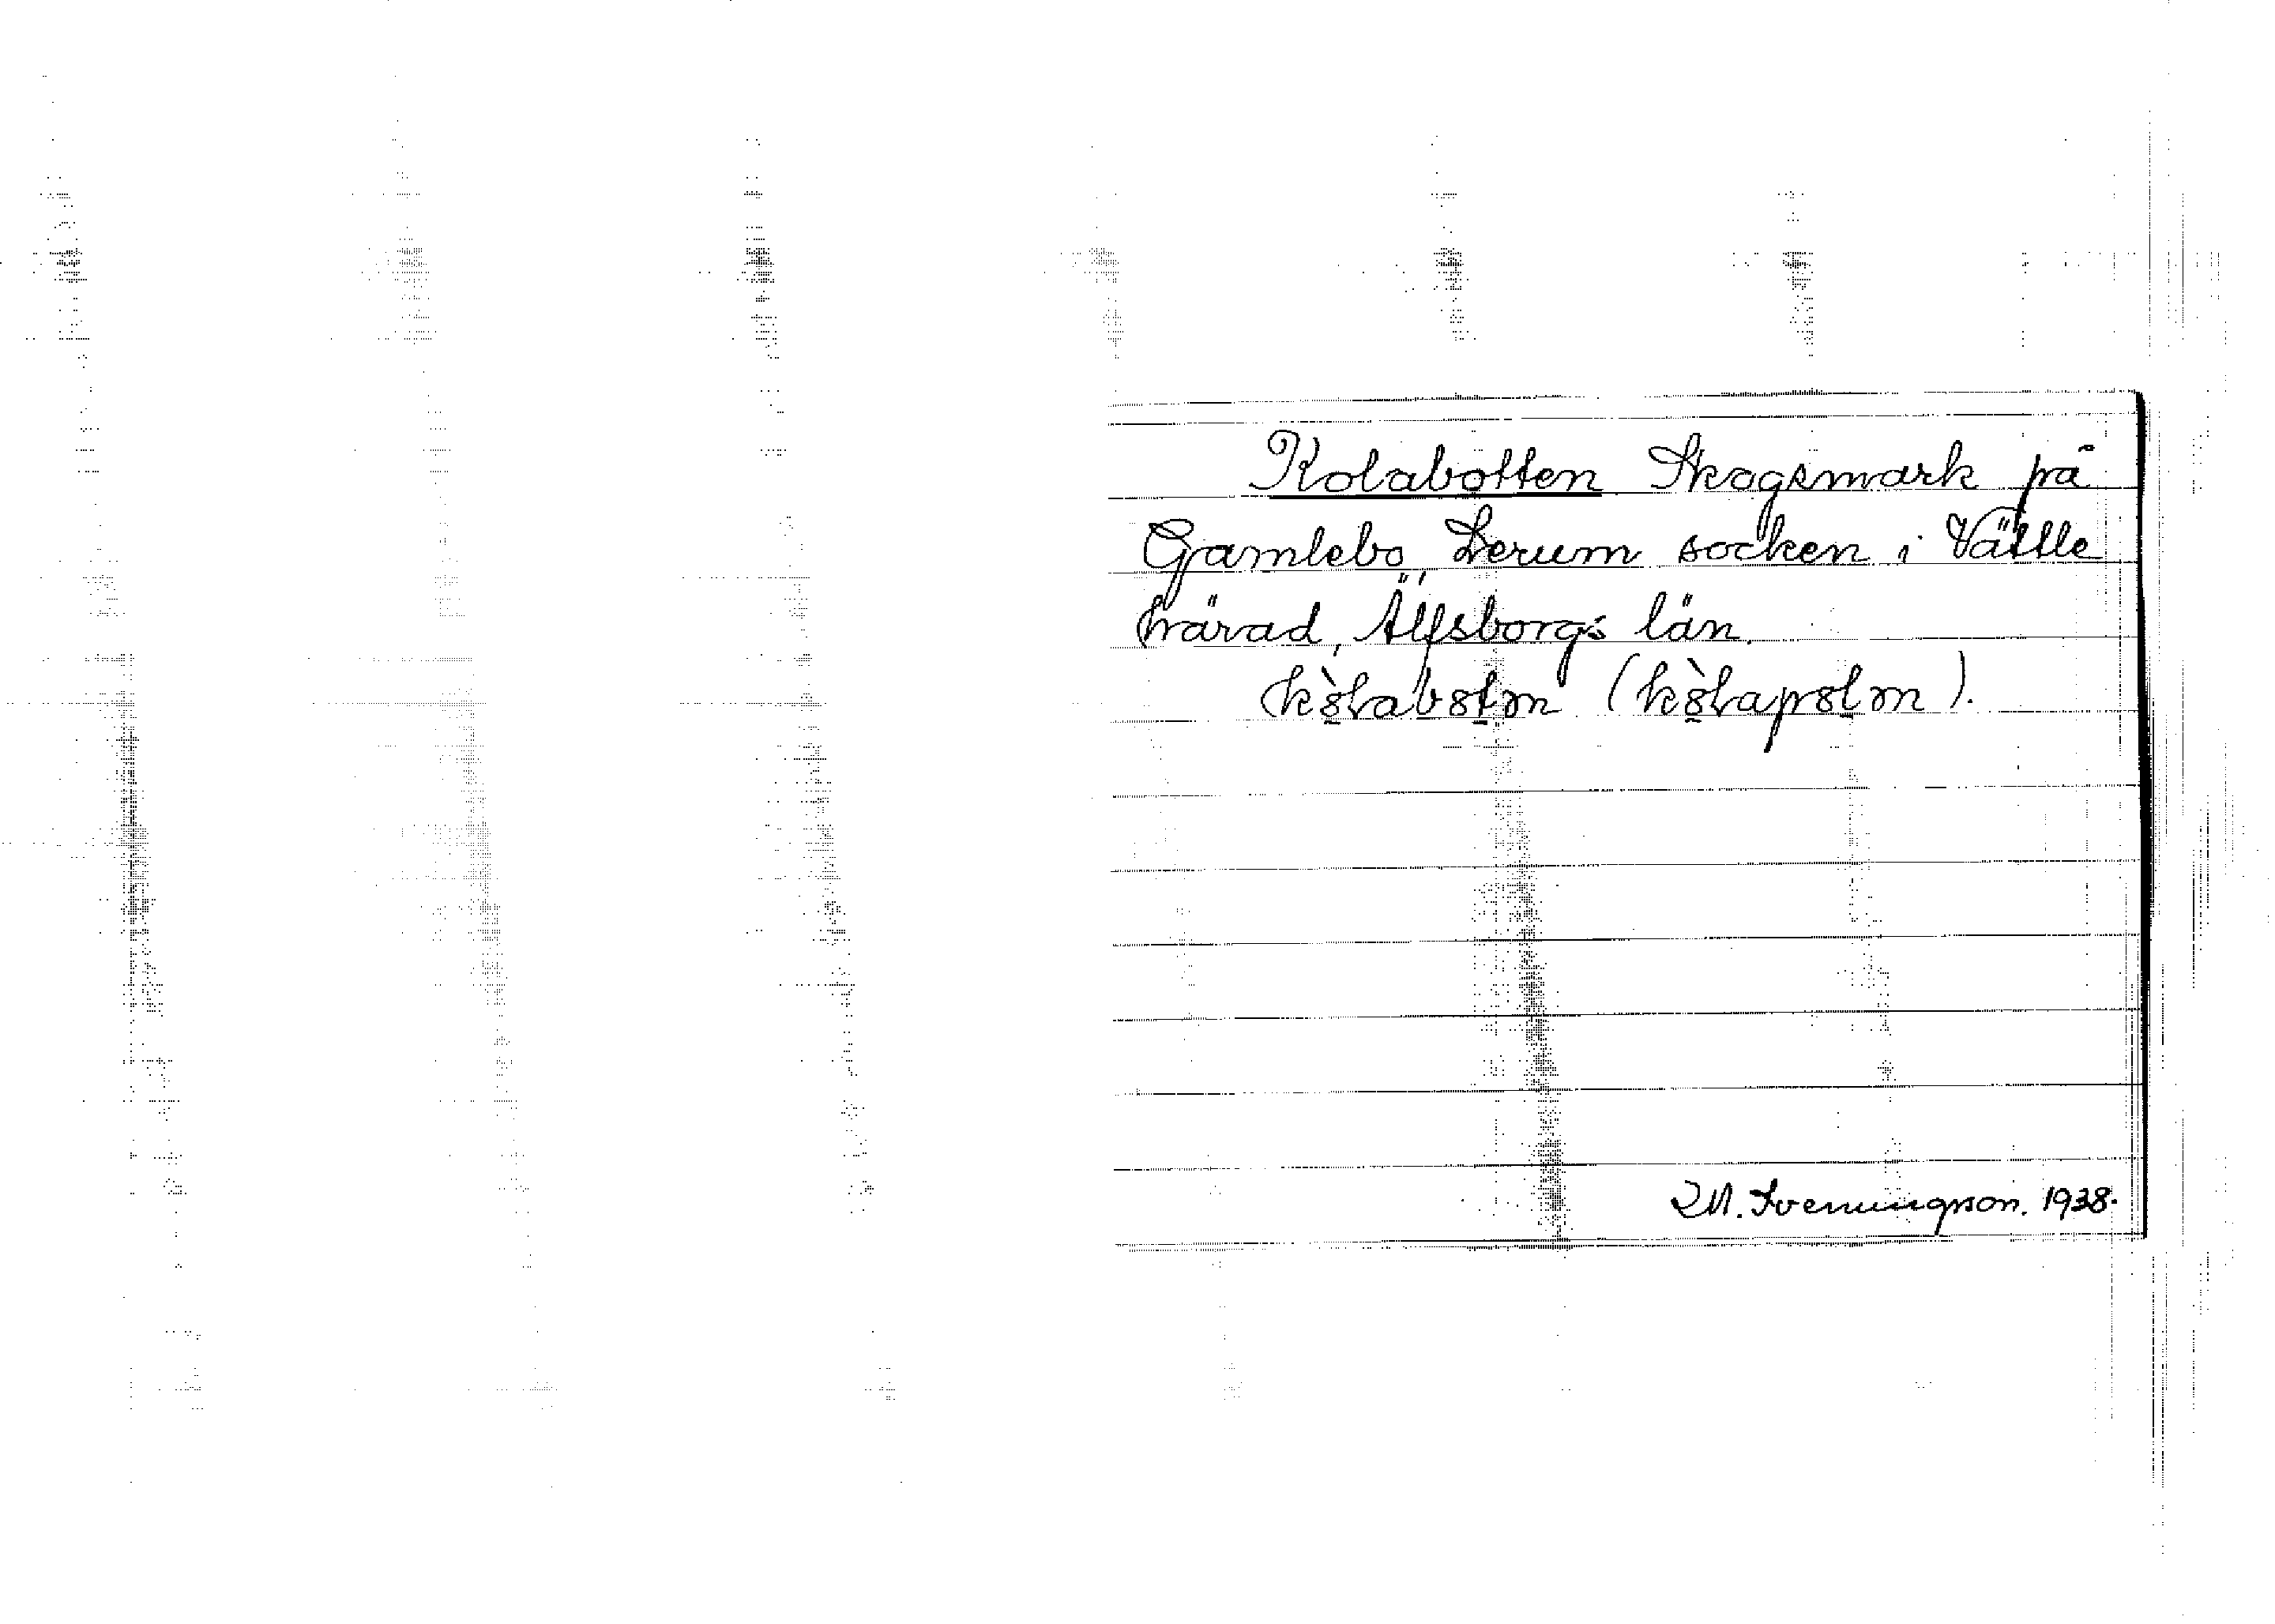 Kolabotten Skogsmark på
Gamlebo, Lerum socken i Vättle
härad, Älfsborgs län.
kòlabotn (kòlapotn).
M. Svenungson. 1938.